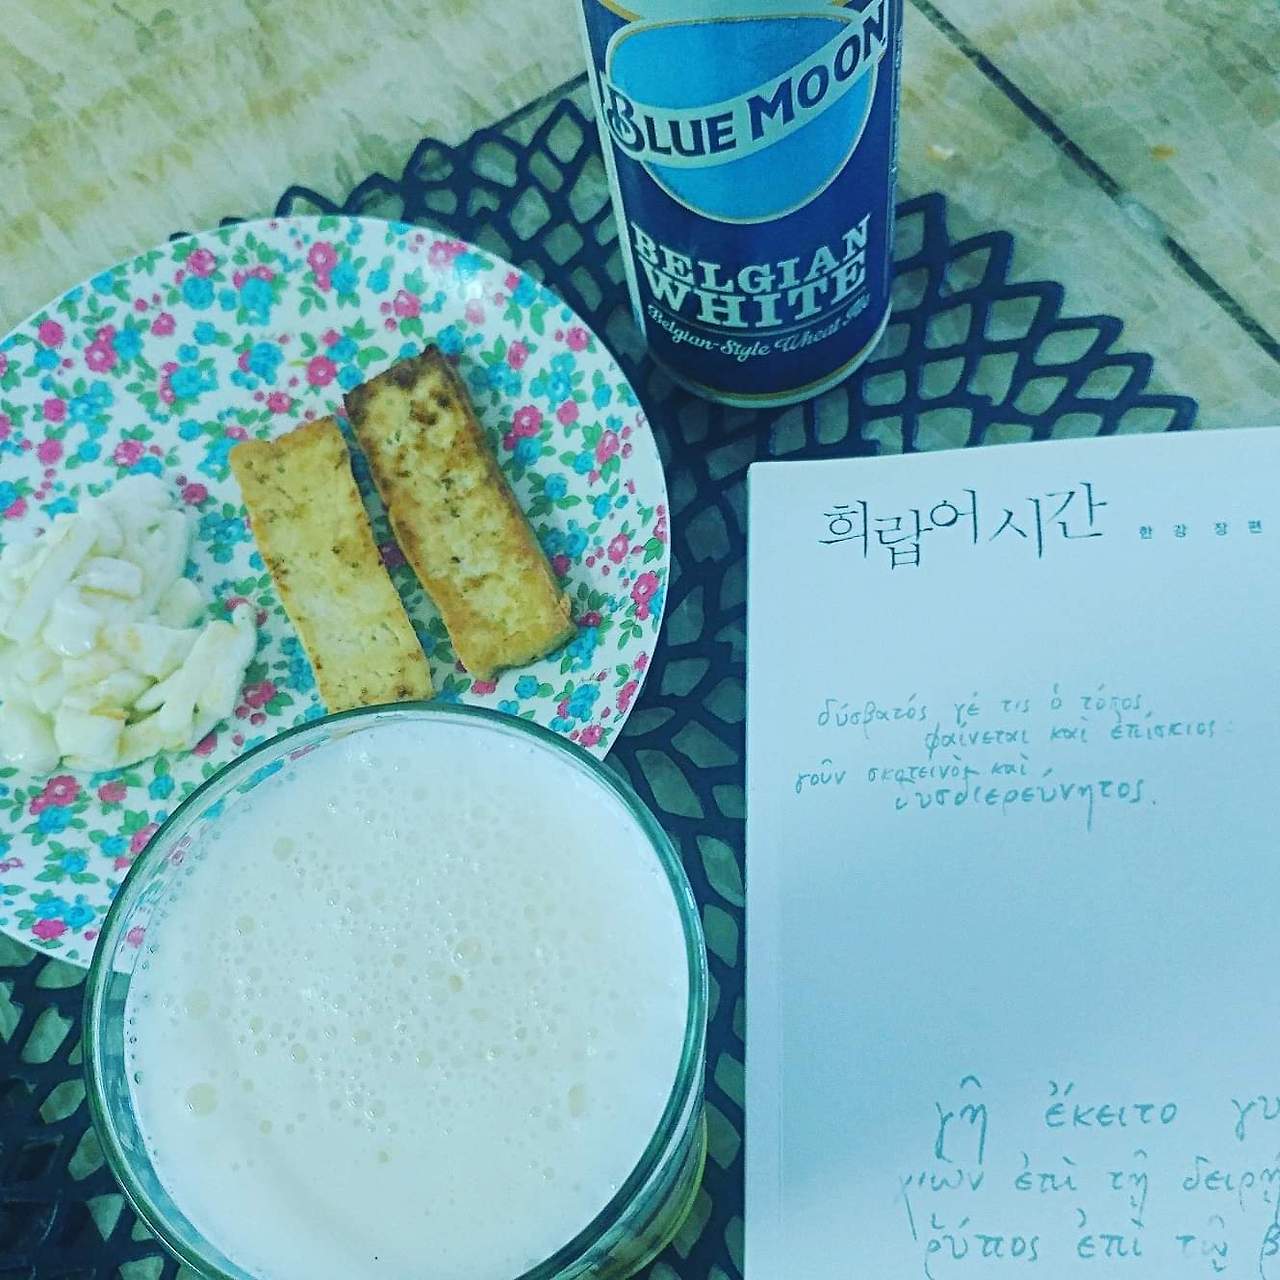 BLUE MOON
BELGIAN
WHITE
Belgian-Style Wheat Ale
희랍어 시간 한강 장편
δύσβατός γέ τις ὁ τόπος
φαίνεται καὶ ἐπίσκιος·
γοῦν σκοτεινὸς καὶ
δυσδιερεύνητος.
γῆ ἔκειτο γυ
ἐπὶ τῇ δειρῇ
ῥύπος ἐπὶ τῷ β